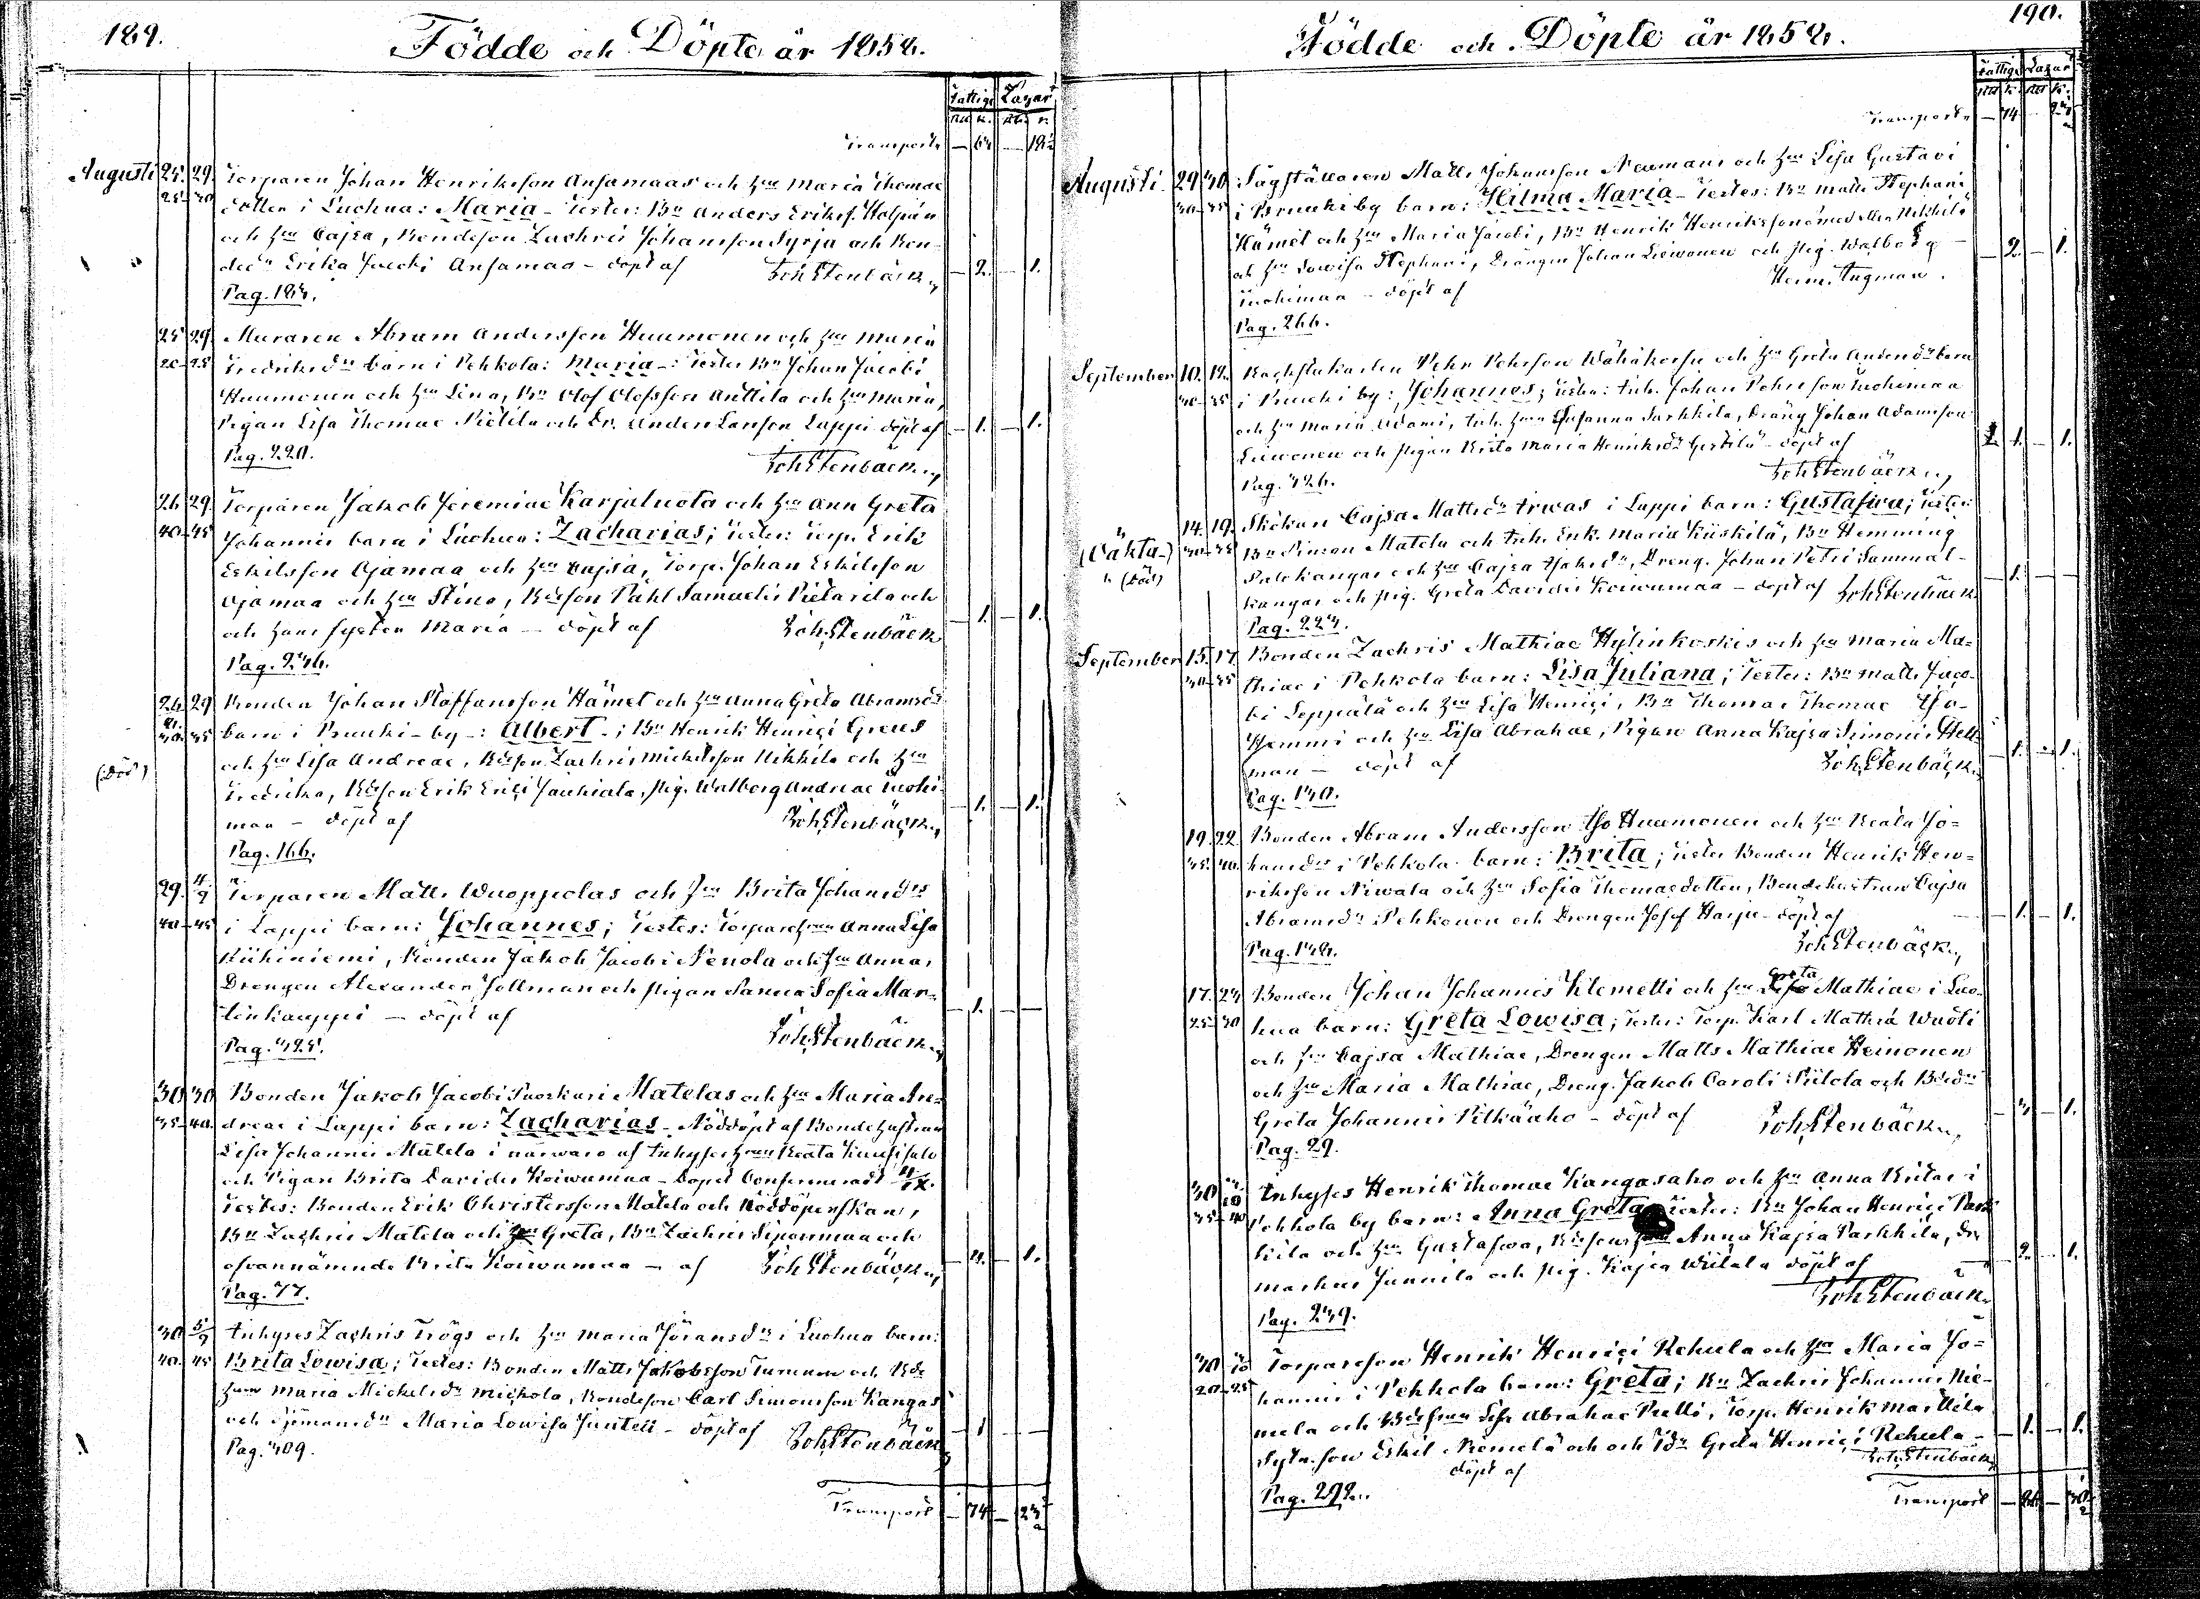 189.
Födde och Döpte år 1858.
Fattige Lazar.
Transport — 64 — 18½
Augusti 25. 29. Torparen Johan Henriksson Ansamaas och hru Maria Thomae
25-30 dotter i Luohua: Maria - Testes: Bn Anders Eriksf. Holpän
och hru Cajsa, Bondeson Zachris Johansson Syrja och Bon-
dedr Erika Jacobi Ansamaa - döpt af Joh. Stenbäck. — 2. — 1.
Pag. 184.
25 29 Muraren Abram Andersson Huumonen och hru Maria
20-25 Fredriksdr barn i Pehkola: Maria -: Testes Bn Johan Jacobi
Huumonen och hru Lina, Bn Olof Olofsson Anttila och hru Maria,
Pigan Lisa Thomae Pietila och Dr. Anders Larsson Lappi döpt af — 1. — 1.
Pag. 220. Joh. Stenbäck.
26 29. Torparen Jakob Jeremiae Karjaluota och hru Ann Greta
40-45 Johannis barn i Luohua: Zacharias; Testes: Torp. Erik
Eskilsson Ojamaa och hru Cajsa, Torp. Johan Eskilsson
Ojamaa och hru Stina, Bdeson Pähl Samuelis Pietarila och
och hans syster Maria - döpt af Joh. Stenbäck — 1. — 1.
Pag. 246.
26 29 Bonden Johan Staffansson Hämet och hru Anna Greta Abramsdr
35 barn i Pruuki-by -: Albert -; Bn Henrik Henrici Greus
och hru Lisa Andreae, Bdeson Zachris Mickelsson Nikkila och hru
(död) Fredrika, Bdeson Erik Erici Jauhiala, Pig. Walborg Andreae Tuohi-
maa - döpt af Joh. Stenbäck. — 1. — 1.
Pag. 166.
29. 4/9 Torparen Matts Wuoppolas och hru Brita Johansdr
40-45 i Lappi barn: Johannes; Testes: Torparehrun Anna Lisa
Kiihiniemi, Bonden Jakob Jacobi Nenola och hru Anna,
Drengen Alexander Jollman och pigan Sanna Sofia Mar-
tinkauppi - döpt af Joh. Stenbäck. — 1. — —
Pag. 425.
30 30 Bonden Jakob Jacobi Puoskari Matelas och hru Maria An-
35-40. dreae i Lappi barn: Zacharias - Nöddöpt af Bondehustrun
Lisa Johannis Matela i närwaro af Inhyseshrun Beata Kuusisalo
och Pigan Brita Davidis Koiwumaa - Dopet Confirmerad 4/IX.
Testes: Bonden Erik Christersson Matela och Nöddöperskan,
Bn Zachris Matela och hru Greta, Bn Zachris Siponmaa och
ofvannämnde Brita Koiwumaa - af Joh. Stenbäck. — 2. — 1.
Pag. 77.
30 5/9 Inhyses Zachris Frögs och hru Maria Jöransdr i Luohua barn:
40. 45 Brita Lowisa; Testes: Bonden Matts Jakobsson Turunen och Bde
hrun Maria Mickelsdr Mickola, Bondeson Carl Simonsson Kangas
och Sjömansdr Maria Lowisa Juntti - döpt af Joh. Stenbäck — 1 — —
Pag. 409.
Transport — 74 — 23½
190.
Födde och Döpte år 1858.
Fattige Lazar.
Transport — 74 — 23½
Augusti. 29 30. Sågställaren Matts Johansson Neumans och hru Lisa Gustavi
30-35 i Pruuki by barn: Hilma Maria - Testes: Bn Matts Stephani
Hämet och hru Maria Jacobi, Bn Henrik Henriksson Nikkilä
och hru Lowisa Stephani, Drengen Johan Liewonen och pig. Walborg — 2. — 1.
Tuohimaa - döpt af Herm. Tugman.
Pag. 266.
September 10. 12. Backstukarlen Pehr Pehrsson Wähäkorpi och hru Greta Andersdr barn
30-35 i Pruuki by: Johannes; Testes: Inh. Johan Pehrsson Tuohimaa
och hru Maria Adami, Inh. hrun Susanna Sarkkila, Dräng Johan Adamsson
Liewonen och pigan Brita Maria Henriksdr Gertila - döpt af — 1. — 1.
Pag. 426. Joh. Stenbäck.
14. 19. Skökan Cajsa Mattsdr Arwas i Lappi barn: Gustafwa; Testes:
(Oäkta) 30-35 Bn Simon Matela och Inh. Enk. Maria Kiiskilä, Bn Hemming
(död) Palokangas och hru Cajsa Isaksdr, Dreng. Johan Petri Sammal-
kangas och pig. Greta Davidis Koiwumaa - döpt af Joh. Stenbäck — 1. — —
Pag. 224.
September 15. 17 Bonden Zachris Mathiae Hylinkoskis och hru Maria Ma-
30-35 thiae i Pehkola barn: Lisa Juliana; Testes: Bn Matts Jaco-
bi Leppälä och hru Lisa Henrici, Bn Thomas Thomae Iso-
Hemmi och hru Lisa Abrahae, Pigan Anna Kajsa Simonis Hell-
man - döpt af Joh. Stenbäck. — 1. — 1.
Pag. 140.
19. 22 Bonden Abram Andersson Iso Huumonen och hru Beata Jo-
35. 40. hansdr i Pehkola barn: Brita; Testes Bonden Henrik Hen-
riksson Niwala och hru Sofia Thomaedotter, Bondehustrun Cajsa
Abramsdr Pehkonen och Drengen Josef Harju - döpt af — 1. — 1.
Pag. 148. Joh. Stenbäck.
Greta
17. 24 Bonden Johan Johannis Klemetti och hru Mathiae i Luo-
25-30 hua barn: Greta Lowisa; Testes: Torp. Karl Mathiae Wuoti
och hru Cajsa Mathiae, Drengen Matts Mathiae Heinonen
och hru Maria Mathiae, Dreng. Jakob Caroli Piilola och Bdedr
Greta Johannis Pitkäaho - döpt af Joh. Stenbäck. — 3 — 1.
Pag. 29.
30 Inhyses Henrik Thomae Kangasaho och hru Anna Britas i
35-40 Pehkola by barn: Anna Greta Testes: Bn Johan Henrici Park-
kila och hru Gustafwa, Bdesons hru Anna Kajsa Parkkila, Dr.
Markus Junnila och pig. Kajsa Wiitala döpt af — 2. — 1.
Pag. 239. Joh. Stenbäck.
30 Torpareson Henrik Henrici Rehula och hru Maria Jo-
20-25 hannis i Pehkola barn: Greta; Bn Zachris Johannis Nie-
mela och Bdehrun Lisa Abrahae Pelli, Torp. Henrik Marttila,
Sytn. son Eskil Niemelä och och Tdr Greta Henrici Rehula - — 1. — 1.
döpt af Joh. Stenbäck.
Pag. 292.
Transport